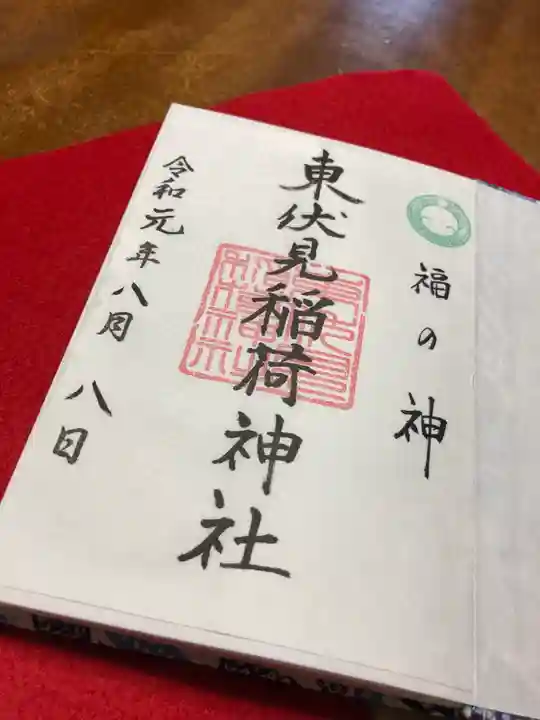 福の神
東伏見稲荷神社
令和元年八月八日